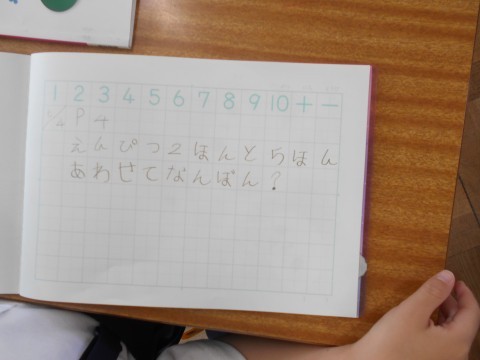 1 2 3 4 5 6 7 8 9 10 + −
P 4
えんぴつ2ほんと5ほん
あわせてなんぽん?